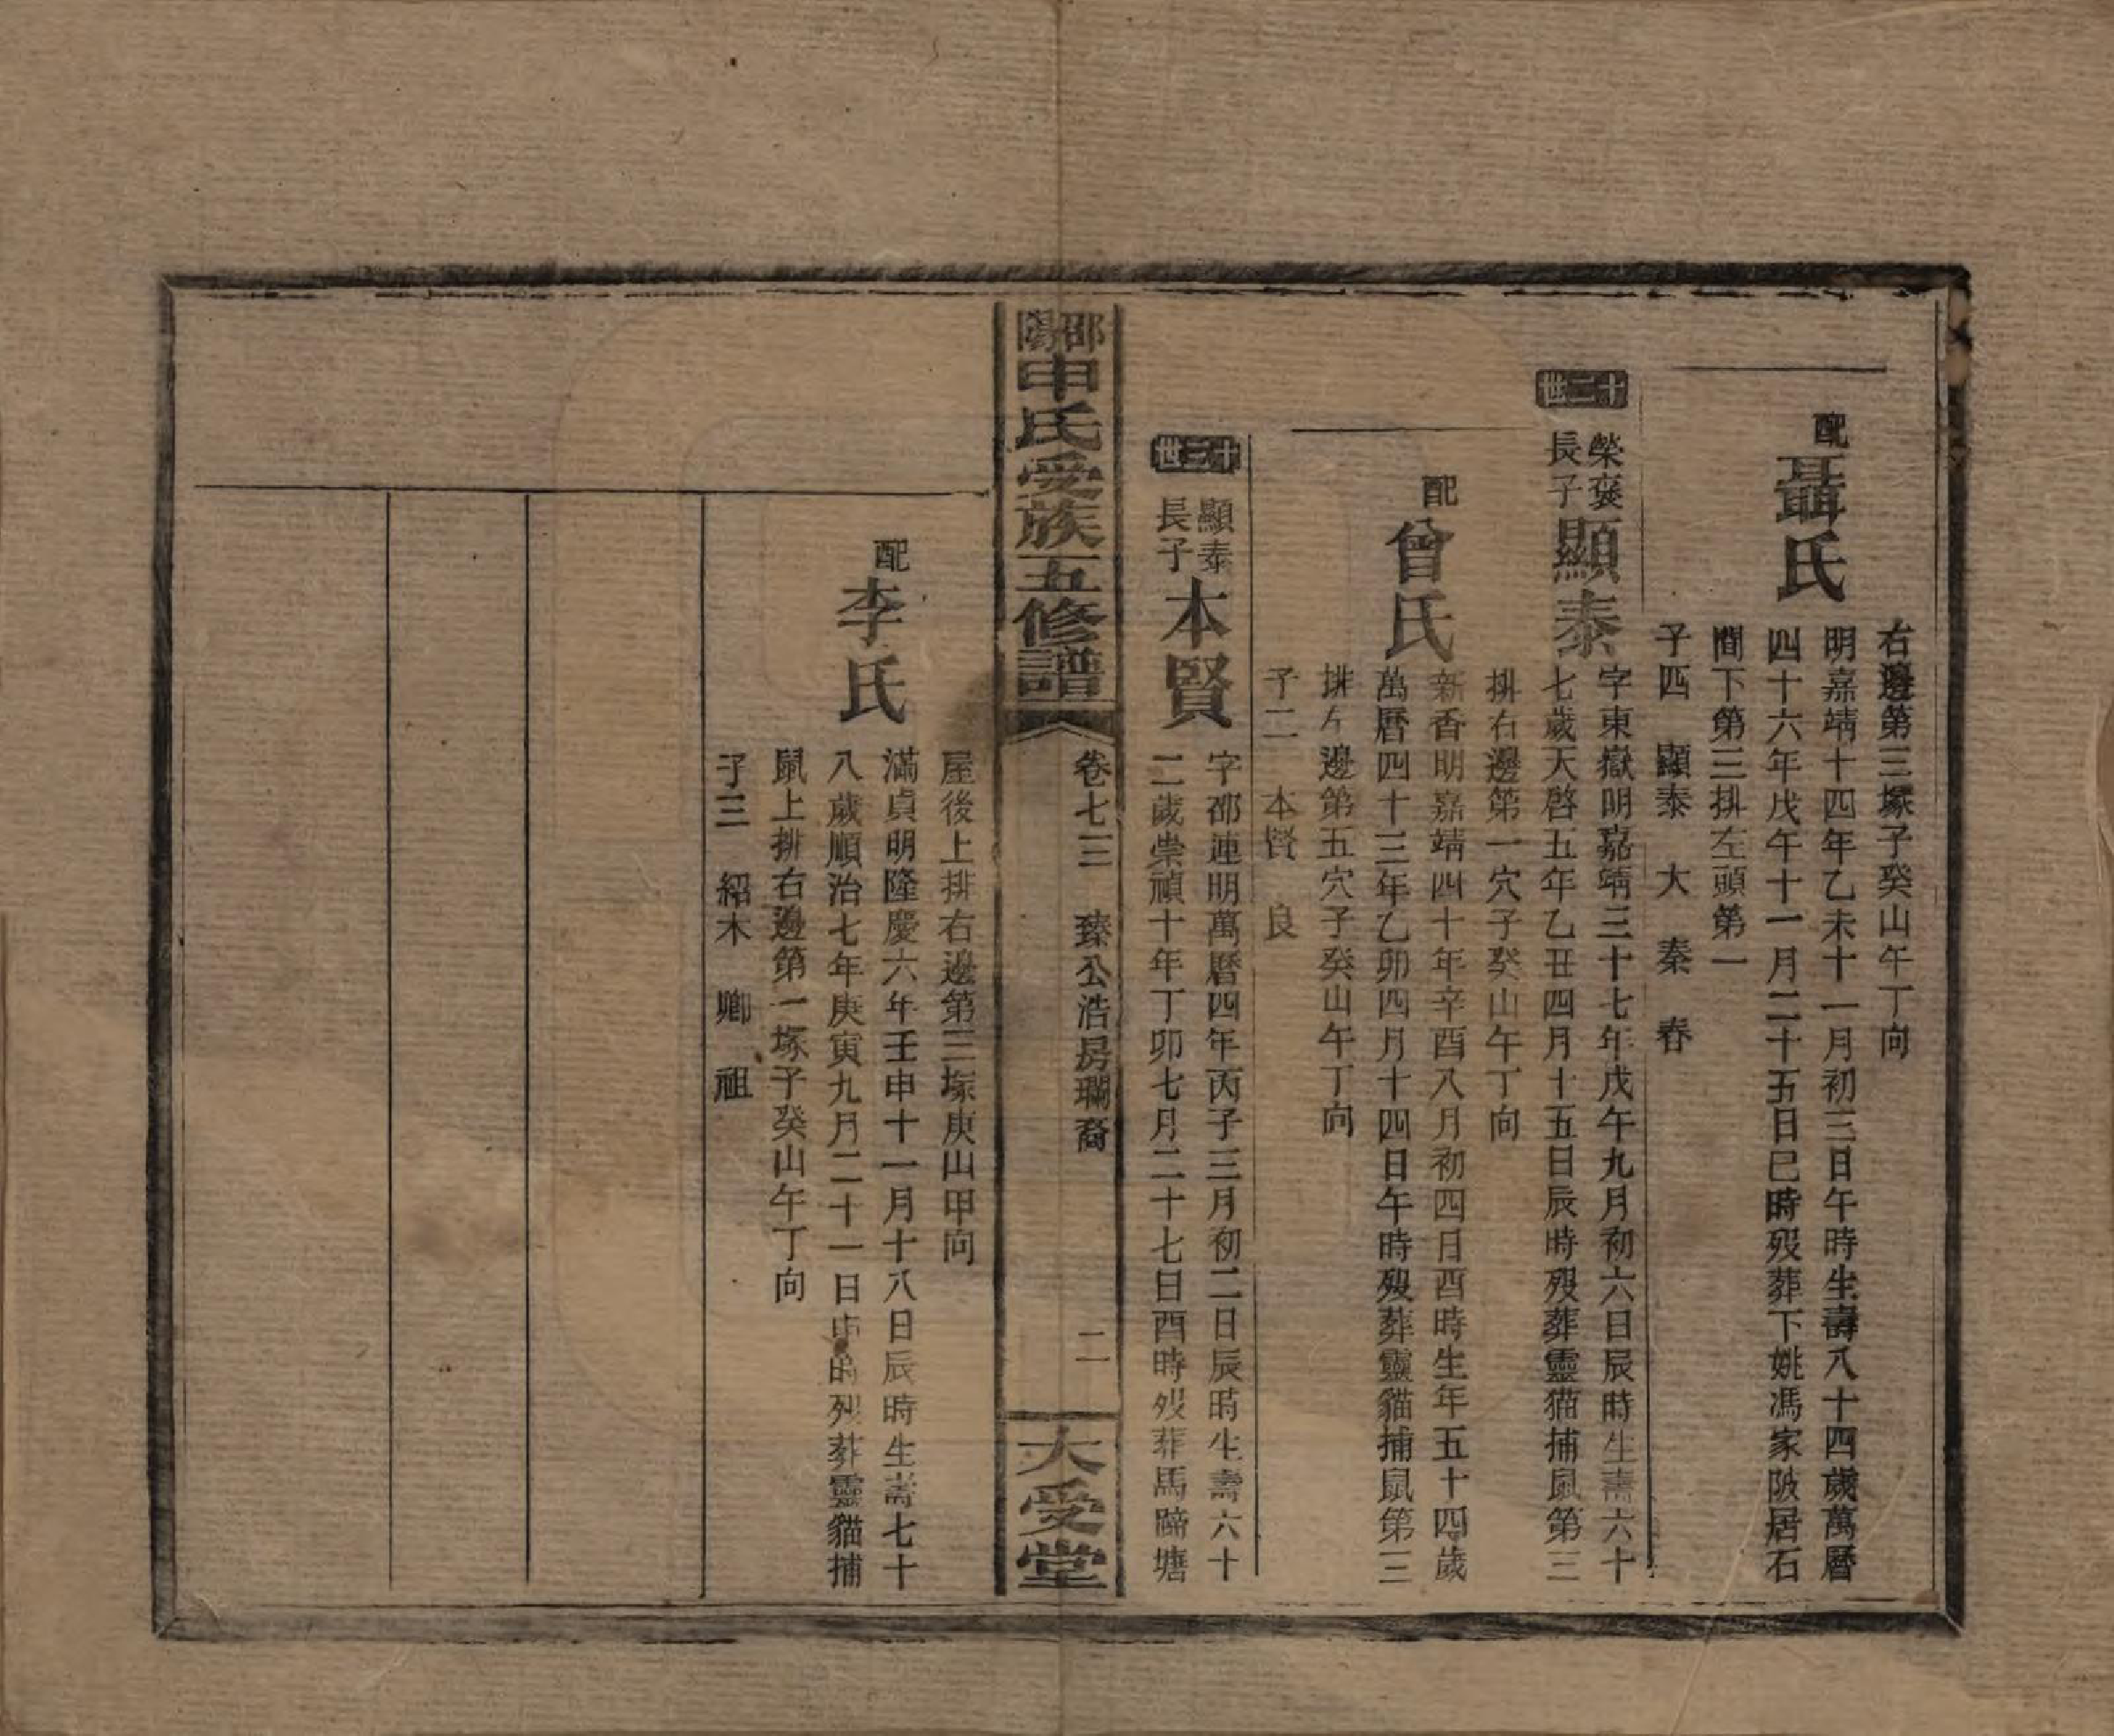 右邊第三塚子癸山午丁向
配聶氏
明嘉靖十四年乙未十一月初三日午時生壽八十四歲萬曆
四十六年戊午十一月二十五日巳時歿葬下姚馮家陂居石
間下第三排左頭第一
子四 顯泰 大 秦 春
十二世
榮褒
長子
顯泰
字東嶽明嘉靖三十七年戊午九月初六日辰時生壽六十
七歲天啓五年乙丑四月十五日辰時歿葬靈猫捕鼠第三
排右邊第一穴子癸山午丁向
配曾氏
新香明嘉靖四十年辛酉八月初四日酉時生年五十四歲
萬曆四十三年乙卯四月十四日午時歿葬靈貓捕鼠第三
排左邊第五穴子癸山午丁向
子二 本賢 良
十三世
顯泰
長子
本賢
字邵連明萬曆四年丙子三月初二日辰時生壽六十
二歲崇禎十年丁卯七月二十七日酉時歿葬馬蹄塘
邵陽申氏受族五修譜
卷七三 臻公浩房瓓裔 二
大受堂
屋後上排右邊第三塚庚山甲向
配李氏
滿貞明隆慶六年壬申十一月十八日辰時生壽七十
八歲順治七年庚寅九月二十一日時歿葬靈貓捕
鼠上排右邊第一塚子癸山午丁向
子三 紹木 卿 祖